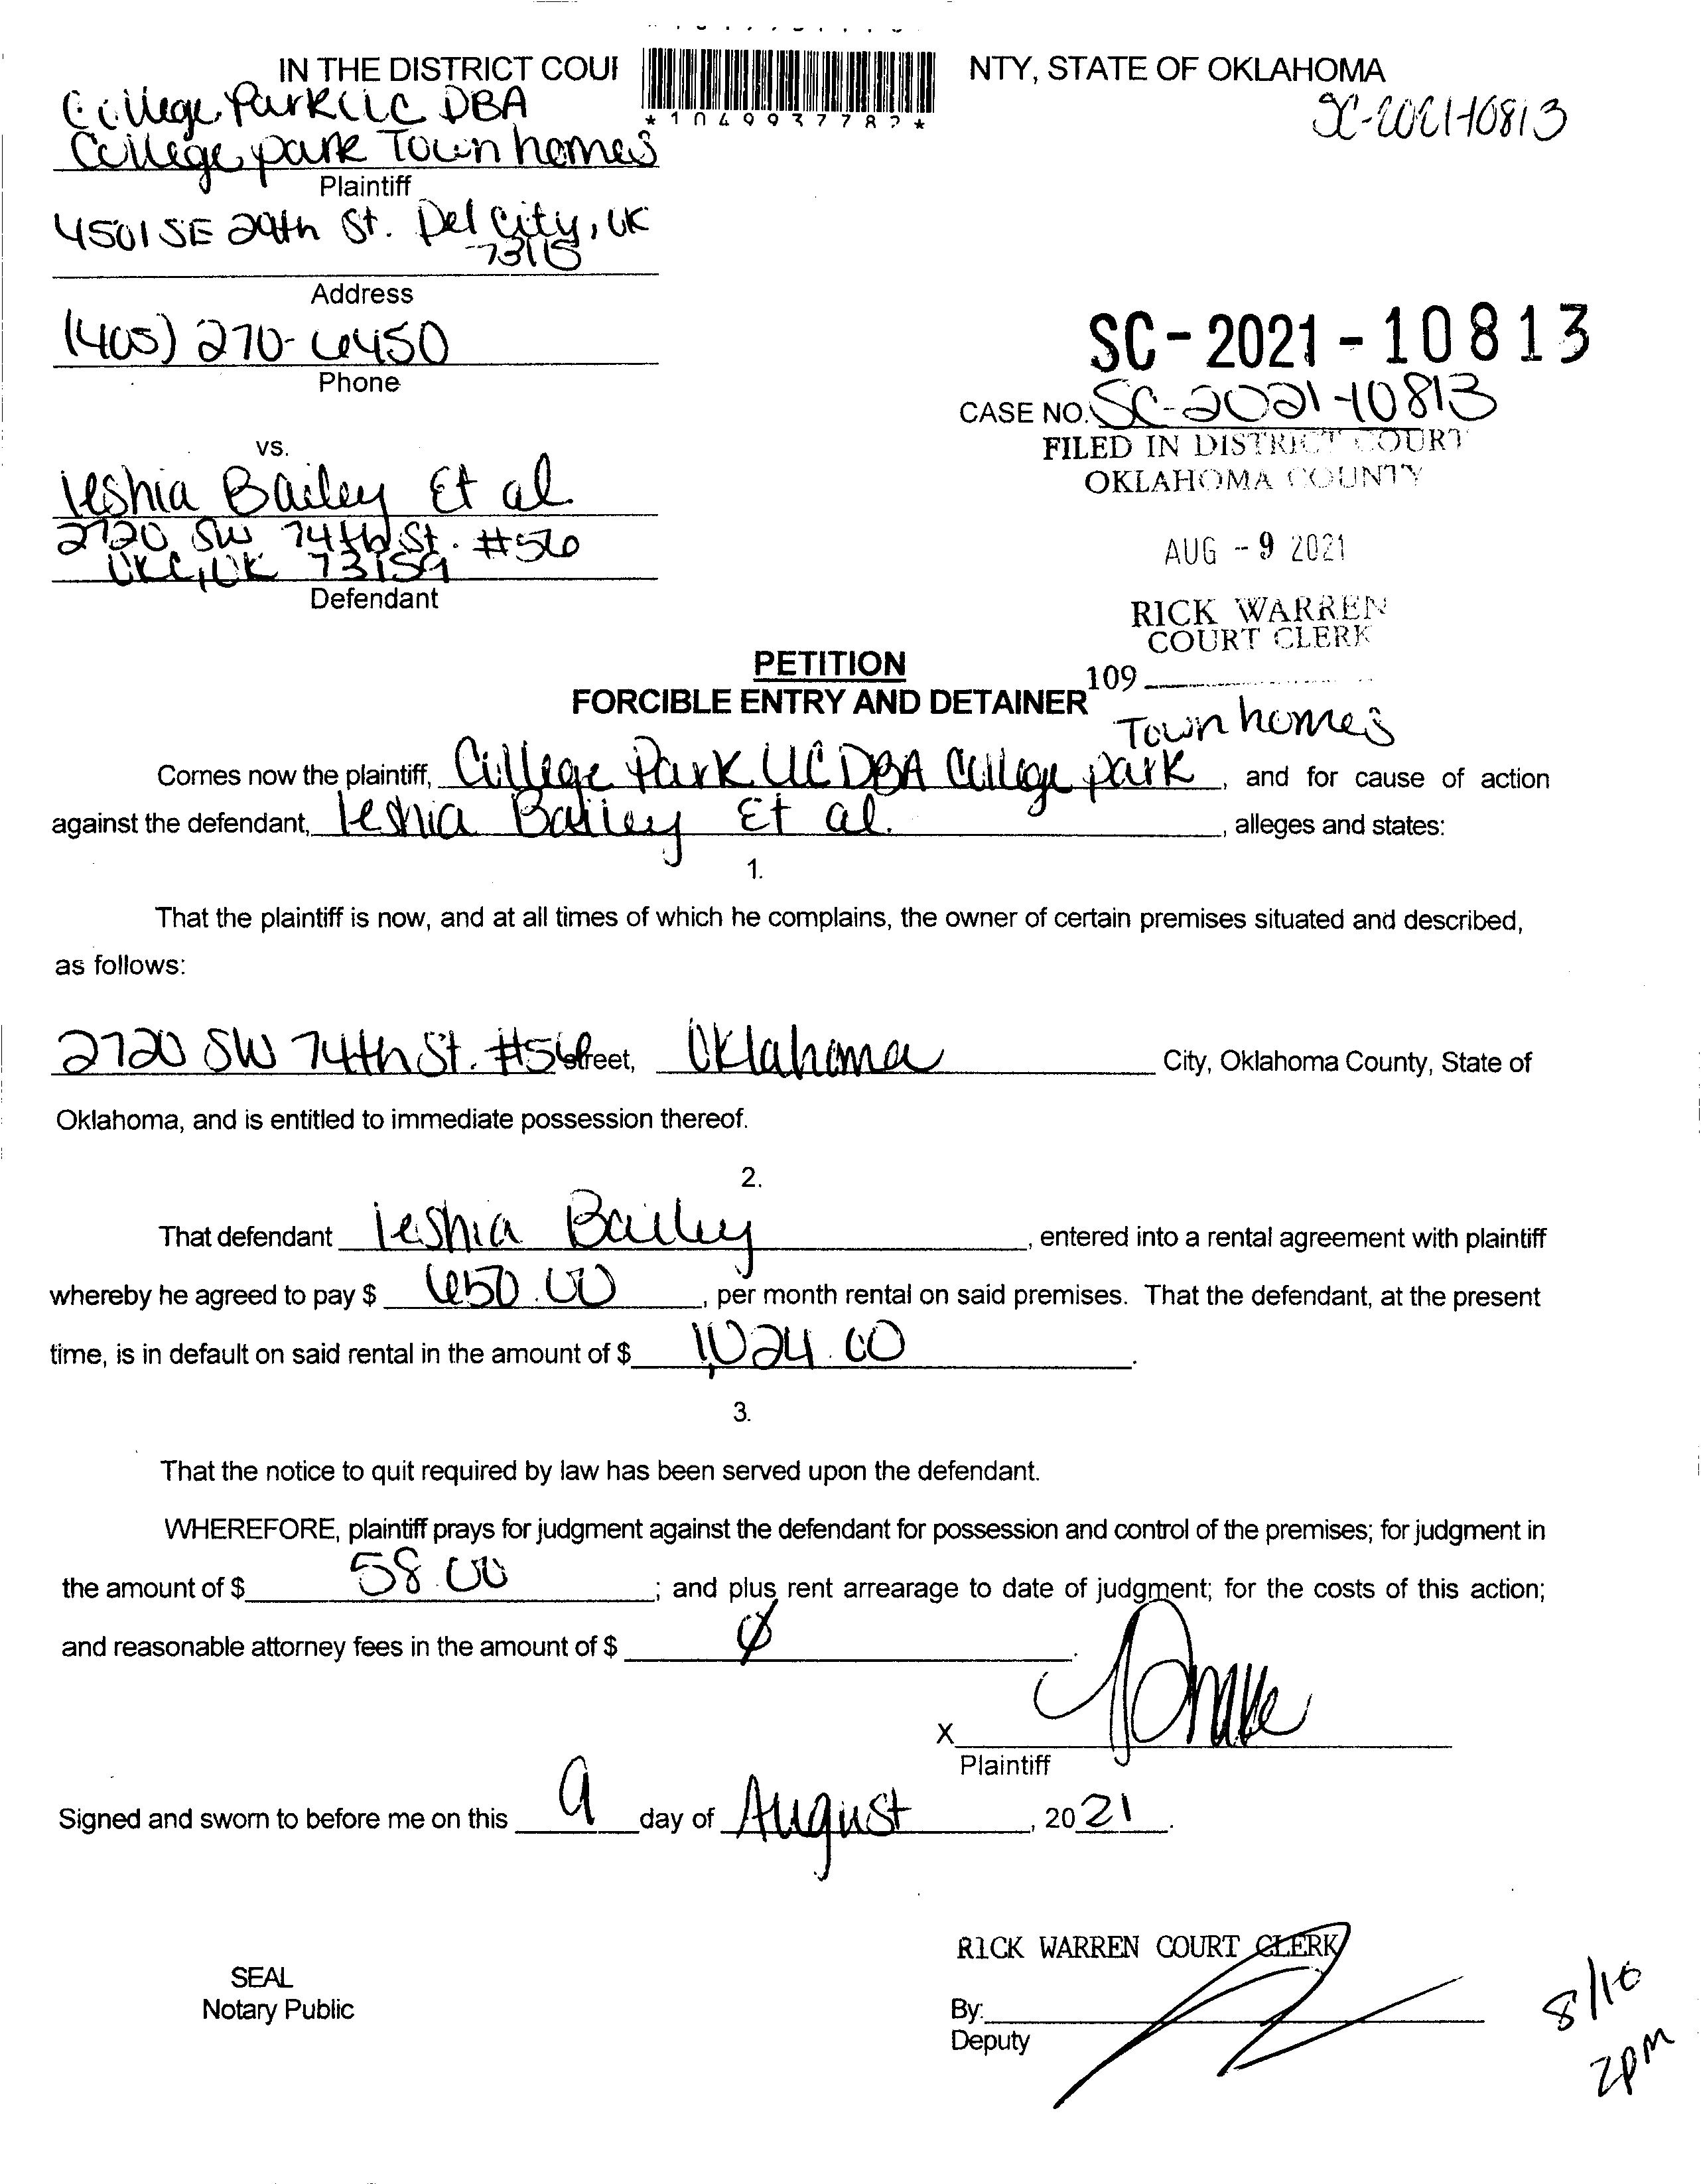 IN THE DISTRICT COU
NTY, STATE OF OKLAHOMA
*1049937782*
SC-2021-10813
College Park LLC DBA
College park Townhomes
Plaintiff
4501 SE 29th St. Del City, OK
73115
Address
(405) 270-6450
Phone
SC-2021-10813
CASE NO. SC-2021-10813
FILED IN DISTRICT COURT
OKLAHOMA COUNTY
AUG -9 2021
RICK WARREN
COURT CLERK
109
vs.
Ieshia Bailey Et al.
2720 SW 74th St. #56
OKC, OK 73159
Defendant
PETITION
FORCIBLE ENTRY AND DETAINER
Townhomes
Comes now the plaintiff, College Park LLC DBA College park, and for cause of action
against the defendant, Ieshia Bailey Et al., alleges and states:
1.
That the plaintiff is now, and at all times of which he complains, the owner of certain premises situated and described,
as follows:
2720 SW 74th St. #56 Street, Oklahoma City, Oklahoma County, State of
Oklahoma, and is entitled to immediate possession thereof.
2.
That defendant Ieshia Bailey, entered into a rental agreement with plaintiff
whereby he agreed to pay $ 650.00, per month rental on said premises. That the defendant, at the present
time, is in default on said rental in the amount of $ 1,024.00.
3.
That the notice to quit required by law has been served upon the defendant.
WHEREFORE, plaintiff prays for judgment against the defendant for possession and control of the premises; for judgment in
the amount of $ 58.00; and plus rent arrearage to date of judgment; for the costs of this action;
and reasonable attorney fees in the amount of $ Ø.
X
Plaintiff
Signed and sworn to before me on this 9 day of August, 2021.
RICK WARREN COURT CLERK
SEAL
Notary Public
By:
Deputy
8/10
2pm